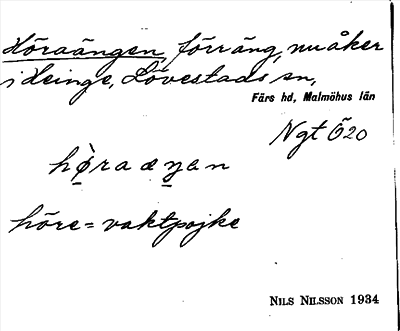 Höraängen, förr äng, nu åker
i Heinge, Lövestads sn,
Färs hd, Malmöhus län
Ngt Ö20
hø̀raæŋan
höre = vaktpojke
NILS NILSSON 1934